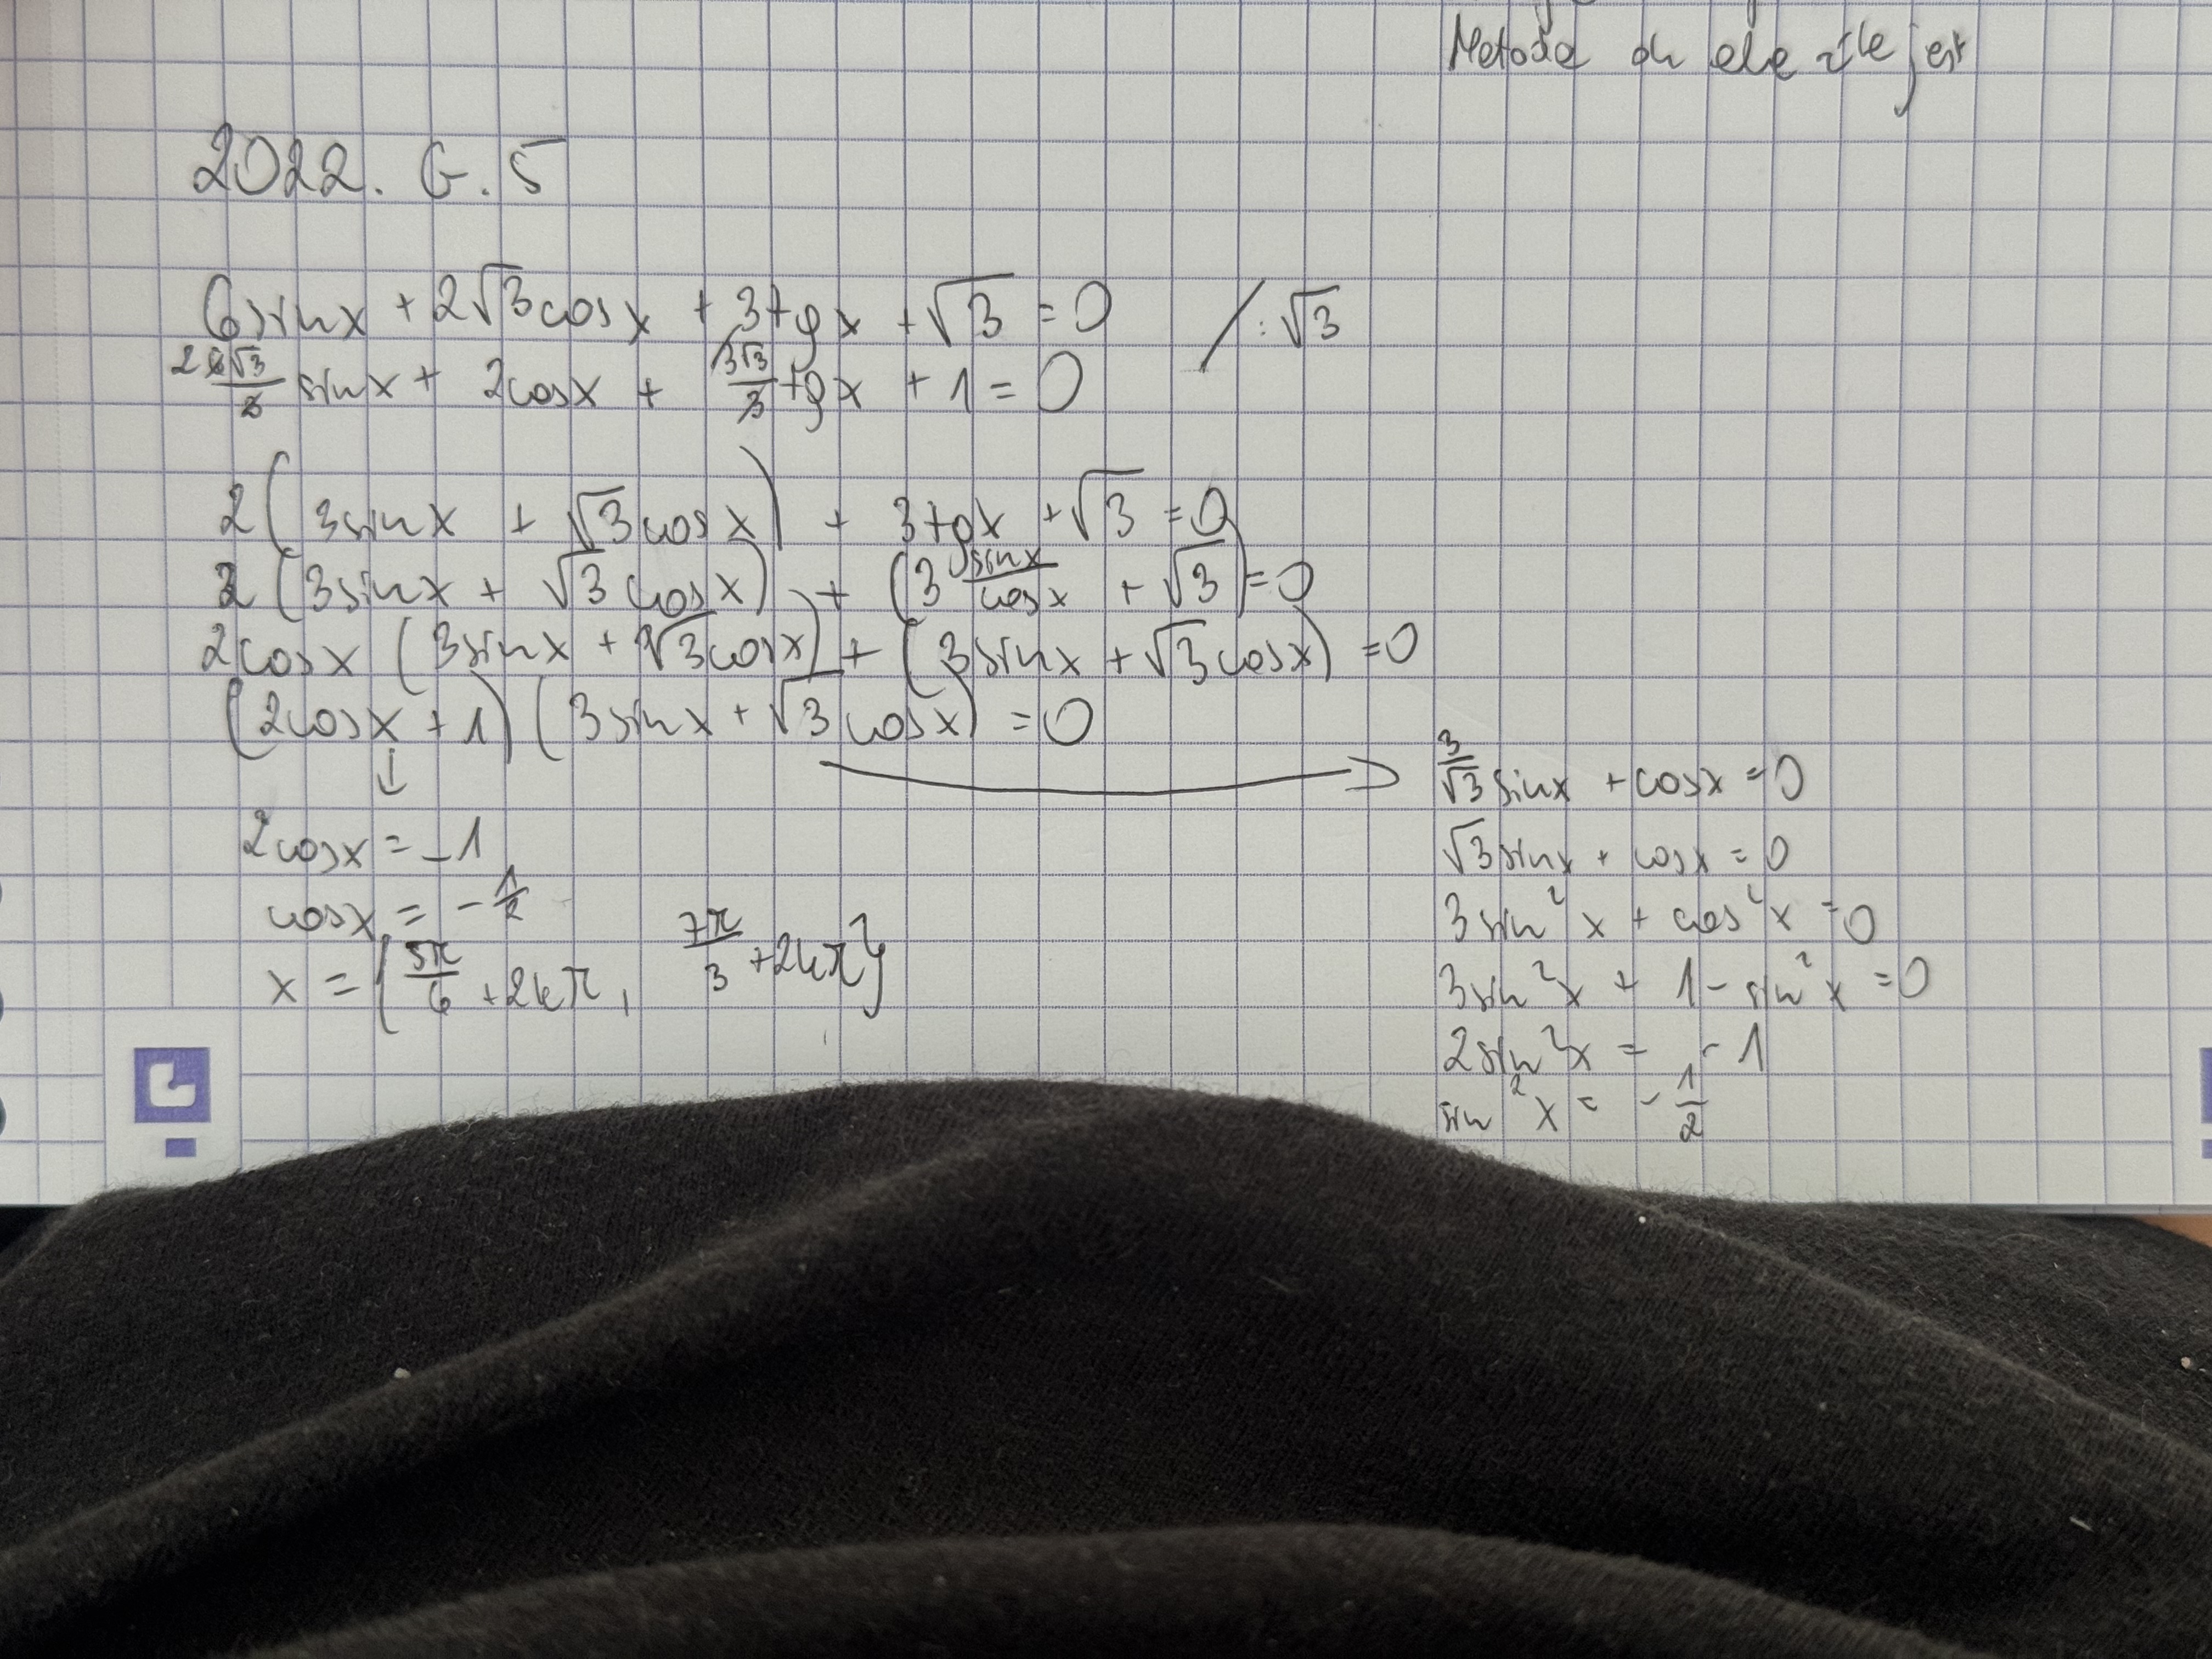 Metoda ok ale źle jest
2022. G. 5
6sinx + 2√3cosx + 3tgx + √3 = 0 /:√3
2 6√3/3 sinx + 2cosx + 3√3/3 tgx + 1 = 0
2(3sinx + √3cosx) + 3tgx + √3 = 0
2(3sinx + √3cosx) + (3 sinx/cosx + √3) = 0
2cosx (3sinx + √3cosx) + (3sinx + √3cosx) = 0
(2cosx + 1)(3sinx + √3cosx) = 0
↓
2cosx = -1
cosx = -1/2
x = {5π/6 + 2kπ, 7π/3 + 2kπ}
→ 3/√3 sinx + cosx = 0
√3sinx + cosx = 0
3sin²x + cos²x = 0
3sin²x + 1 - sin²x = 0
2sin²x = -1
sin²x = -1/2